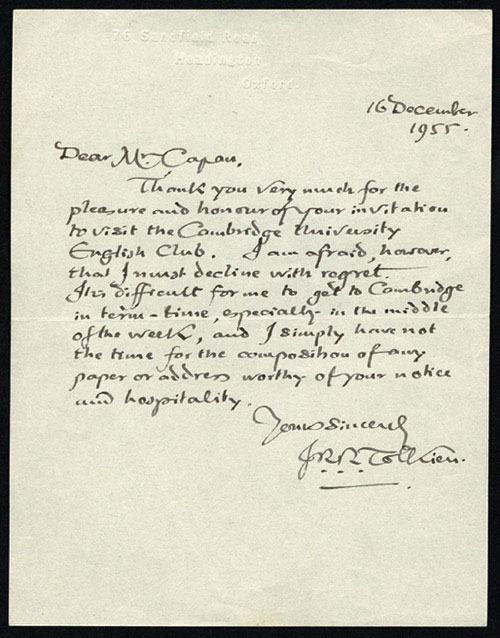 76 Sandfield Road
Headington
Oxford.
16 December
1955.
Dear Mr. Capan,
Thank you very much for the
pleasure and honour of your invitation
to visit the Cambridge University
English Club. I am afraid, however,
that I must decline with regret.
It is difficult for me to get to Cambridge
in term-time, especially in the middle
of the week, and I simply have not
the time for the composition of any
paper or address worthy of your notice
and hospitality.
Yours sincerely
J.R.R. Tolkien.